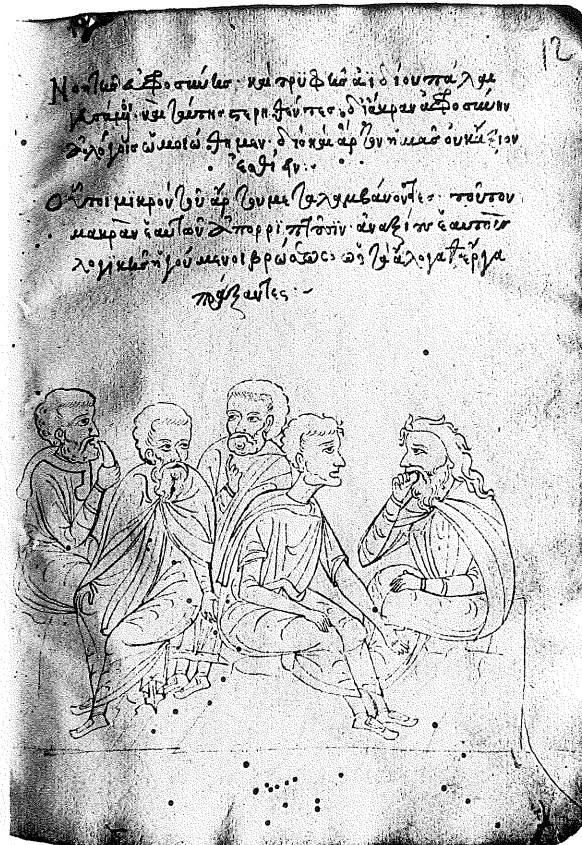 12
Νοητῆς εὐφροσύνης· καὶ τρυφῆς ἀϊδίου πάλαι
καὶ ταύτης στερηθέντες, δι' ἄκραν ἀφροσύνην
ἀλόγοις ὡμοιώθημεν· διὸ καὶ ἄρτον ἡμᾶς οὐκ ἄξιον
ἐσθίειν:
Οὗτοι μικρὸν τοῦ ἄρτου μεταλαμβάνοντες· τοῦτον
μακρὰν ἑαυτῶν ἀπορρίπτουσιν· ἀναξίους ἑαυτοὺς
λογικῆς ἡγούμενοι βρώσεως, ὡς τὰ ἄλογα ἔργα
πράξαντες:-